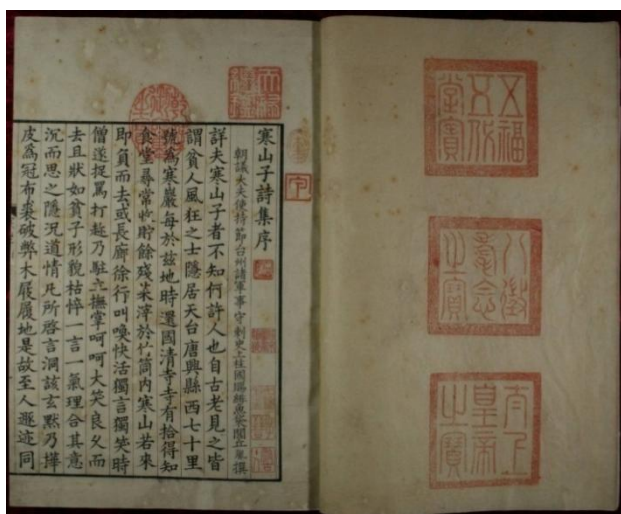 五福
五代
堂寶
八徵
耄念
之寶
太上
皇帝
之寶
天祿
繼鑑
寒山子詩集序
朝議大夫使持節台州諸軍事守刺史上柱國賜緋魚袋閭丘胤撰
詳夫寒山子者不知何許人也自古老見之皆
謂貧人風狂之士隱居天台唐興縣西七十里
號為寒巖每於茲地時還國清寺寺有拾得知
食堂尋常收貯餘殘菜滓於竹筒內寒山若來
即負而去或長廊徐行叫喚快活獨言獨笑時
僧遂捉罵打趁乃駐立撫掌呵呵大笑良久而
去且狀如貧子形貌枯悴一言一氣理合其意
沉而思之隱況道情凡所啓言洞該玄默乃樺
皮為冠布裘破弊木屐履地是故至人遯迹同